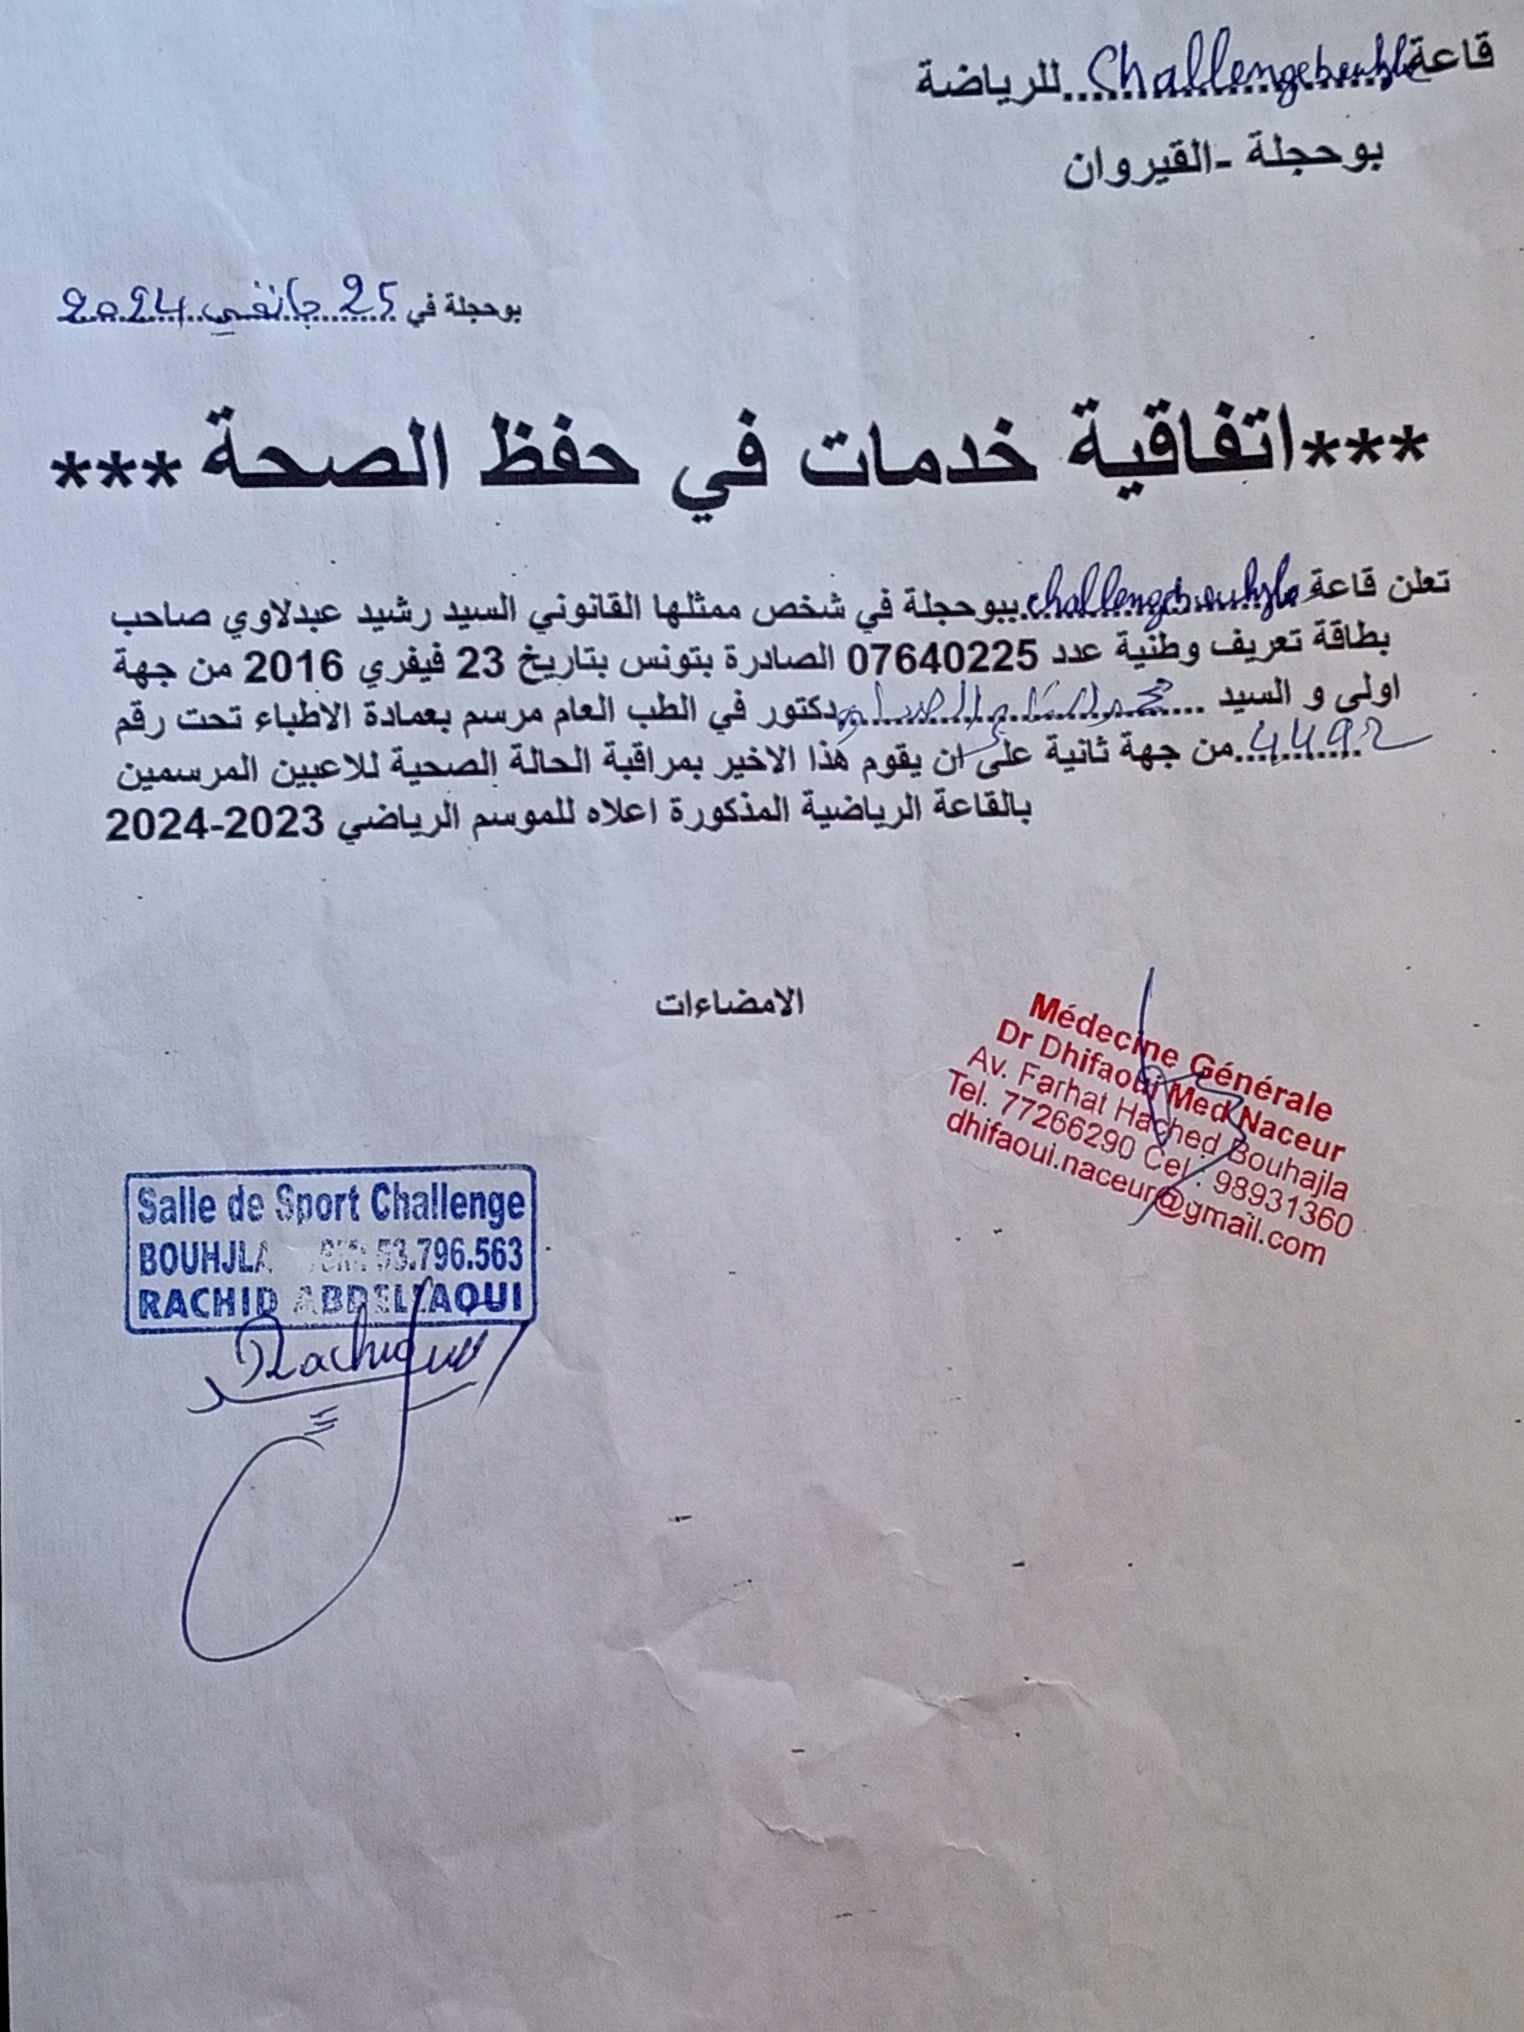 قاعة Challenge bouhjla للرياضة
بوحجلة -القيروان
بوحجلة في 25 جانفي 2024
***اتفاقية خدمات في حفظ الصحة ***
تعلن قاعة challenge bouhjla ببوحجلة في شخص ممثلها القانوني السيد رشيد عبدلاوي صاحب
بطاقة تعريف وطنية عدد 07640225 الصادرة بتونس بتاريخ 23 فيفري 2016 من جهة
اولى و السيد محمد الناصر دكتور في الطب العام مرسم بعمادة الاطباء تحت رقم
4492 من جهة ثانية على ان يقوم هذا الاخير بمراقبة الحالة الصحية للاعبين المرسمين
بالقاعة الرياضية المذكورة اعلاه للموسم الرياضي 2023-2024
الامضاءات
Médecine Générale
Dr Dhifaoui Med Naceur
Av. Farhat Hached Bouhajla
Tel. 77266290 Cel : 98931360
dhifaoui.naceur@gmail.com
Salle de Sport Challenge
BOUHJLA 53.796.563
RACHID ABDELLAOUI
Rachid